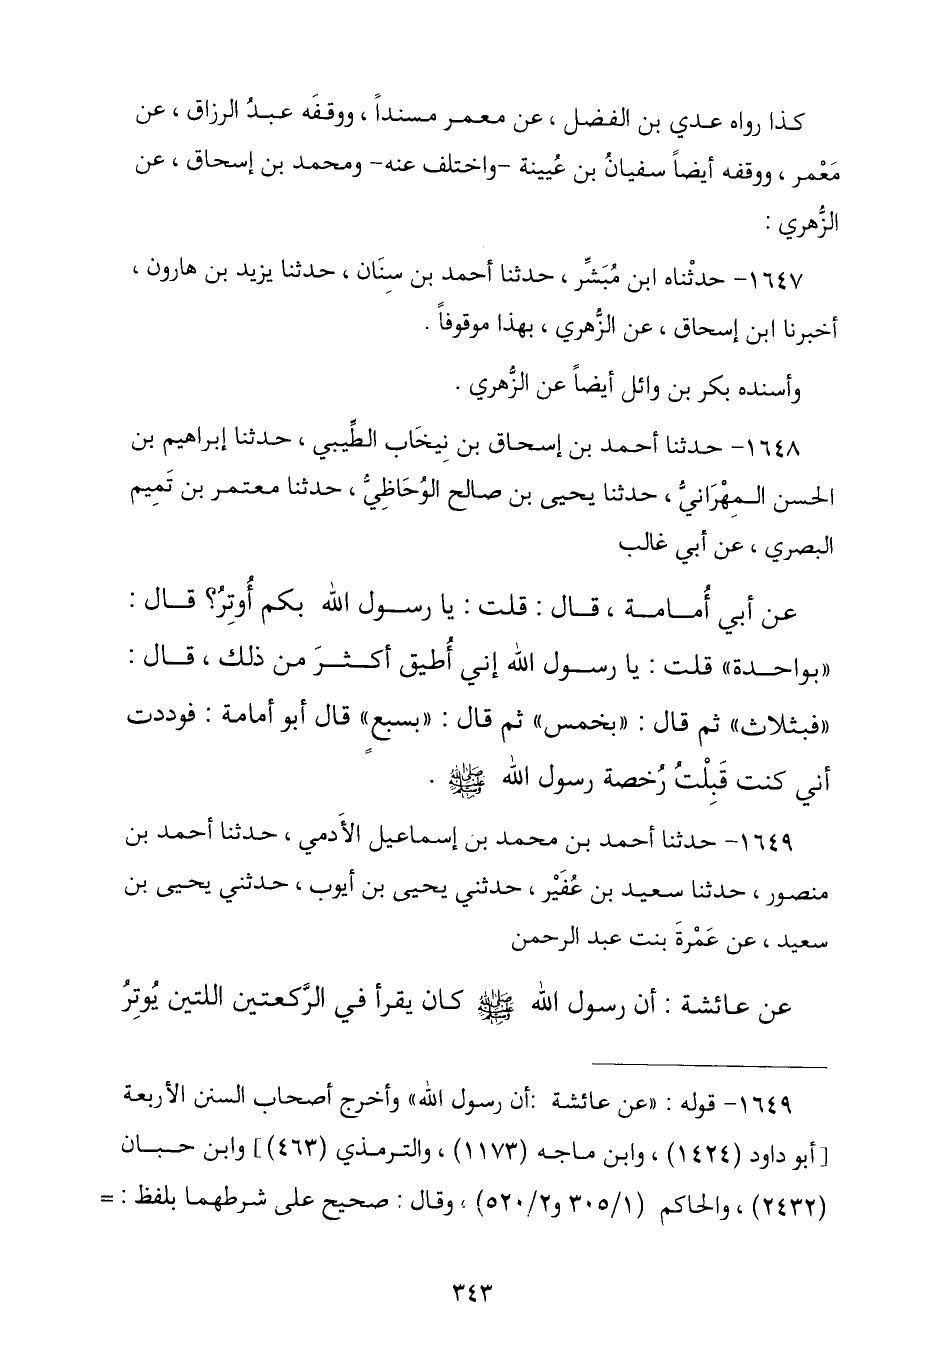 كذا رواه عدي بن الفضل ، عن معمر مسنداً ، ووقفَه عبدُ الرزاق ، عن
مَعْمر ، ووقفه أيضاً سفيانُ بن عُيينة -واختلف عنه- ومحمد بن إسحاق ، عن
الزُّهري :
١٦٤٧- حدثْناه ابن مُبَشِّر ، حدثنا أحمد بن سِنَان ، حدثنا يزيد بن هارون ،
أخبرنا ابن إسحاق ، عن الزُّهري ، بهذا موقوفاً .
وأسنده بكر بن وائل أيضاً عن الزُّهري .
١٦٤٨- حدثنا أحمد بن إسحاق بن نِيخَاب الطِّيبي ، حدثنا إبراهيم بن
الحسن المِهْرَانيُّ ، حدثنا يحيى بن صالح الوُحَاظِيُّ ، حدثنا معتمر بن تَميم
البصري ، عن أبي غالب
عن أبي أُمامة ، قال : قلت : يا رسول الله بكم أُوتِرُ؟ قال :
«بواحدة» قلت : يا رسول الله إني أُطيق أكثرَ من ذلك ، قال :
«فبثلاث» ثم قال : «بخمس» ثم قال : «بسبعٍ» قال أبو أمامة : فوددت
أني كنت قَبِلْتُ رُخصة رسول الله ﷺ .
١٦٤٩- حدثنا أحمد بن محمد بن إسماعيل الأَدمي ، حدثنا أحمد بن
منصور ، حدثنا سعيد بن عُفَيْر ، حدثني يحيى بن أيوب ، حدثني يحيى بن
سعيد ، عن عَمْرةَ بنت عبد الرحمن
عن عائشة : أن رسول الله ﷺ كان يقرأ في الرَّكعتين اللتين يُوتِرُ
١٦٤٩- قوله : «عن عائشة :أن رسول الله» وأخرج أصحاب السنن الأربعة
[أبو داود (١٤٢٤) ، وابن ماجه (١١٧٣) ، والترمذي (٤٦٣)] وابن حبان
(٢٤٣٢) ، والحاكم (٣٠٥/١ و٥٢٠/٢) ، وقال : صحيح على شرطهما بلفظ : =
٣٤٣